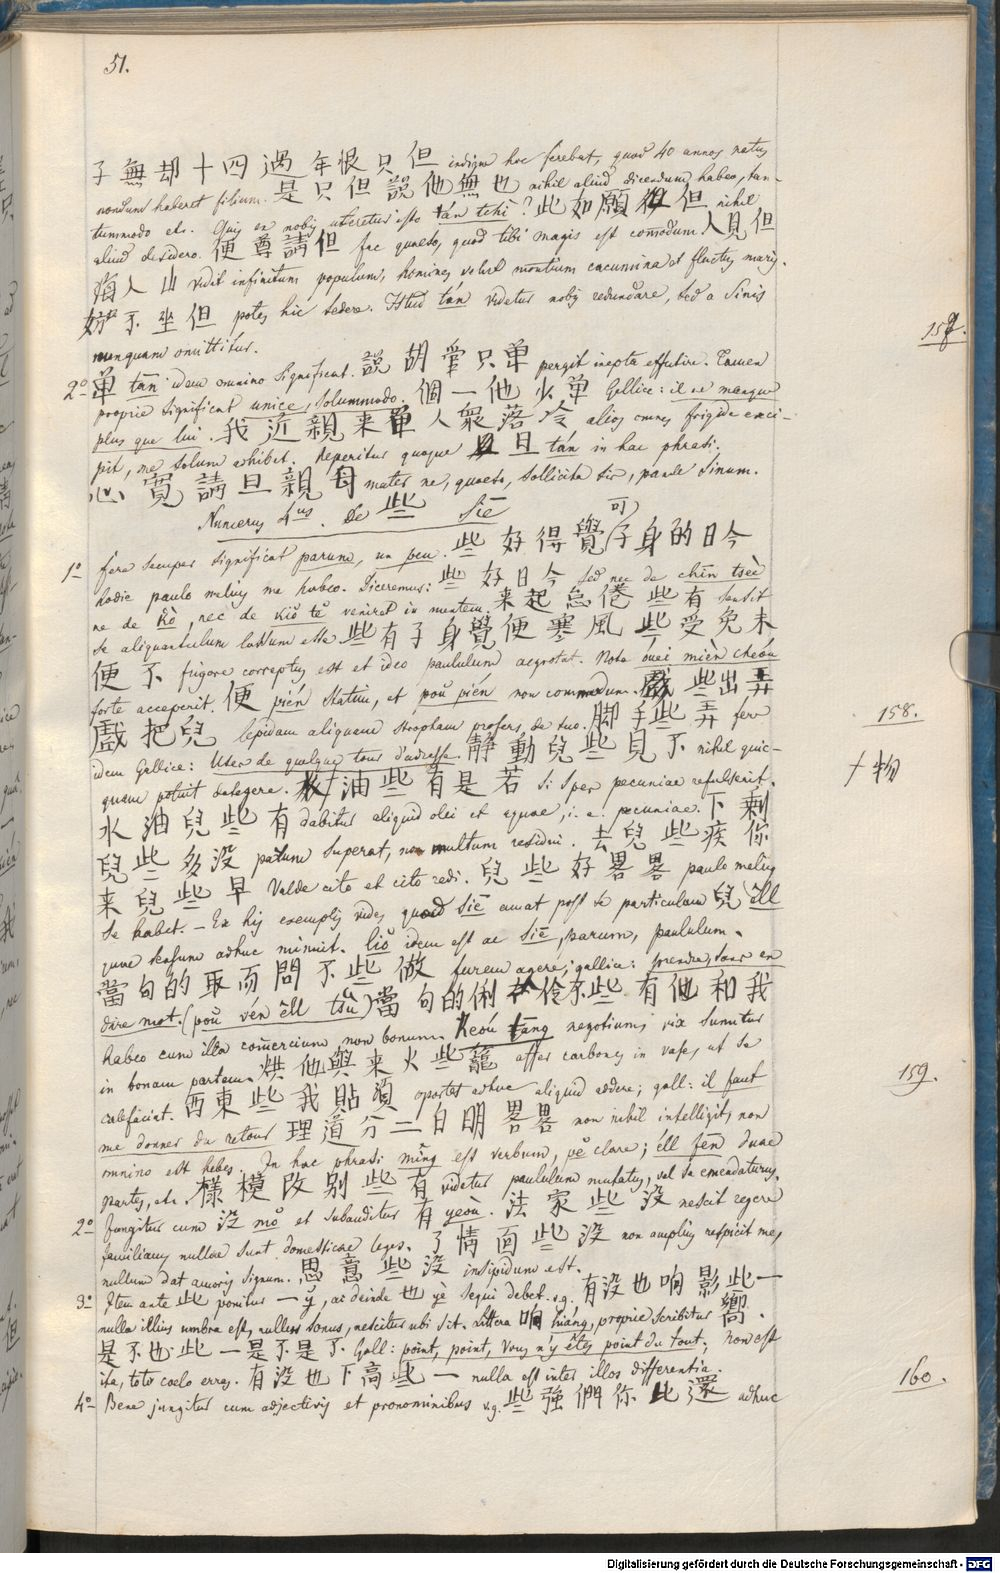 51.
子無却十四過年恨只但 indigne hoc ferebat, quod 40 annos natus
nondum haberet filium. 是只但說他無也 nihil aliud dicendum habeo, tan-
tummodo etc. Quis ex nobis uteretur isto tán tchi? 此如願但 nihil
aliud desidero. 便尊請但 fac quaeso, quod tibi magis est commodum. 人見但
海人山 vidit infinitum populum, homines velut montium cacumina et fluctus maris.
好不坐但 potes hic sedere. Istud tán videtur nobis redundare, sed a Sinis
nunquam omittitur.
2º 單 tān idem omnino significat. 說胡管只單 pergit inepta effutire. Tamen
proprie significat unice, solummodo. 個一他少單 Gallice: il ne manque
plus que lui. 我近親来單人衆落冷 alios omnes frigide exci-
pit, me solum adhibet. Reperitur quoque 旦 tán in hac phrasi.
心寬請旦親母 mater ne, quaeso, sollicita sis, parle sinum.
Numerus 4us. De 些 siē
1º fere semper significat parum, un peu. 些好得覺可子身的日今
hodie paulo melius me habeo. Diceremus: 些好日今 sed nec de chīn tseè
ne de kò, nec de kiŏ tĕ veniret in mentem. 来起怠倦些有 sentit
se aliquantulum lassum esse 些有子身覺便寒風些受免未
便不 frigore correptus est et ideo paululum aegrotat. Nota óuei mièn cheóu
forte acceperit. 便 pién statim, et poŭ pién non commodum. 戲些出弄
戲把兒 lepidam aliquam stropham profers de tuo. 脚手些弄 fere
idem Gallice: User de quelque tour d'adresse. 靜動兒些見不 nihil quic-
quam potuit detegere. 水油些有是若 si spes pecuniae refulserit.
水油兒些有 dabitur aliquid olei et aquae, i. e. pecuniae. 下剩
兒些多没 parum superat, non multum residui. 去兒些疾你
来兒些早 Valde cito et cito redi. 兒些好畧畧 paulo melius
se habet. – Ex his exemplis vides quod siē amat post se particulam 兒 êll
quae sensum adhuc minuit. liŏ idem est ac siē, parum, paululum.
當勾的取而問不些做 furem agere; gallice: prendre, sans en
dire mot. (poŭ vén êll tsiù) 當勾的俐伶不些有他和我
habeo cum illa commercium non bonum. Keóu táng negotium; vix sumitur
in bonam partem. 烘他與来火些籠 affer carbones in vase, ut se
calefaciat. 西東些我貼須 oportet adhuc aliquid addere; gall: il faut
me donner du retour 理道分二白明畧畧 non nihil intelligit, non
omnino est hebes. In hac phrasi mîng est verbum, pĕ clare; éll fēn duae
partes, etc. 樣模改别些有 videtur paululum mutatus, vel se emendaturus.
2º Jungitur cum 没 mŏ et subauditur 有 yeòu. 法家些没 nescit regere
familiam, nullae sunt domesticae leges. 了情面些没 non amplius respicit me,
nullum dat amoris signum. 思意些没 insipidum est.
3º Item ante 些 ponitur 一 y̆, ac deinde 也 yè sequi debet. v.g. 有没也响影些一
nulla illius umbra est, nullus sonus, nescitur ubi sit. Littera 响 hiáng, proprie scribitur 嚮.
是不也些一是不是不 Gall: point, point, Vous n'y êtes point du tout; non est
ita, toto caelo erras. 有没也下高些一 nulla est inter illos differentia.
4º Bene jungitur cum adjectivis et pronominibus v.g. 些強們你比還 adhuc
157.
158.
+ 物
159.
160.
Digitalisierung gefördert durch die Deutsche Forschungsgemeinschaft - DFG